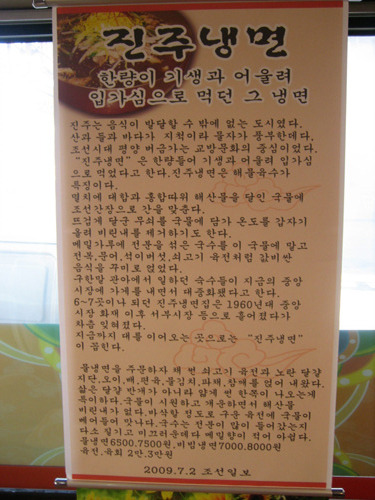 진주냉면
한량이 기생과 어울려
입가심으로 먹던 그 냉면
진주는 음식이 발달할 수 밖에 없는 도시였다.
산과 들과 바다가 지척이라 물자가 풍부한데다.
조선시대 평양 버금가는 교방문화의 중심이었다.
"진주냉면" 은 한량들이 기생과 어울려 입가심
으로 먹었다고 한다.진주냉면은 해물육수가
특징이다.
멸치에 대합과 홍합따위 해산물을 달인 국물에
조선간장으로 간을 맞춘다.
뜨겁게 달군 무쇠를 국물에 담가 온도를 갑자기
올려 비린내를 제거하기도 한다.
메밀가루에 전분을 섞은 국수를 이 국물에 말고
전복.문어.석이버섯.쇠고기 육전처럼 값비싼
음식을 꾸미로 얹었다.
구한말 관아에서 일하던 숙수들이 지금의 중앙
시장에 가게를 내면서 대중화됐다고 한다.
6~7곳이나 되던 진주냉면집은 1960년대 중앙
시장 화재 이후 서부시장 등으로 흩어졌다가
차츰 잊혀졌다.
지금까지 대를 이어오는 곳으로는 "진주냉면"
이 꼽힌다.
물냉면을 주문하자 채 썬 쇠고기 육전과 노란 달걀
지단.오이.배.편육.물김치.파채.삼배를 얹어 내왔다.
삶은 달걀 반개가 아니라 얇게 썬 한쪽이 나오는게
독특하다.국물이 시원하고 개운하면서 해산물
비린내가 없다.바삭할 정도로 구운 육전에 국물이
베어들어 맛나다.국수는 전분이 많이 들어갔는지
다소 질기고 미끄러운데다 메밀향이 적어 아쉽다.
물냉면6500.7500원.비빔냉면7000.8000원
육전.육회 2만.3만원
2009.7.2 조선일보